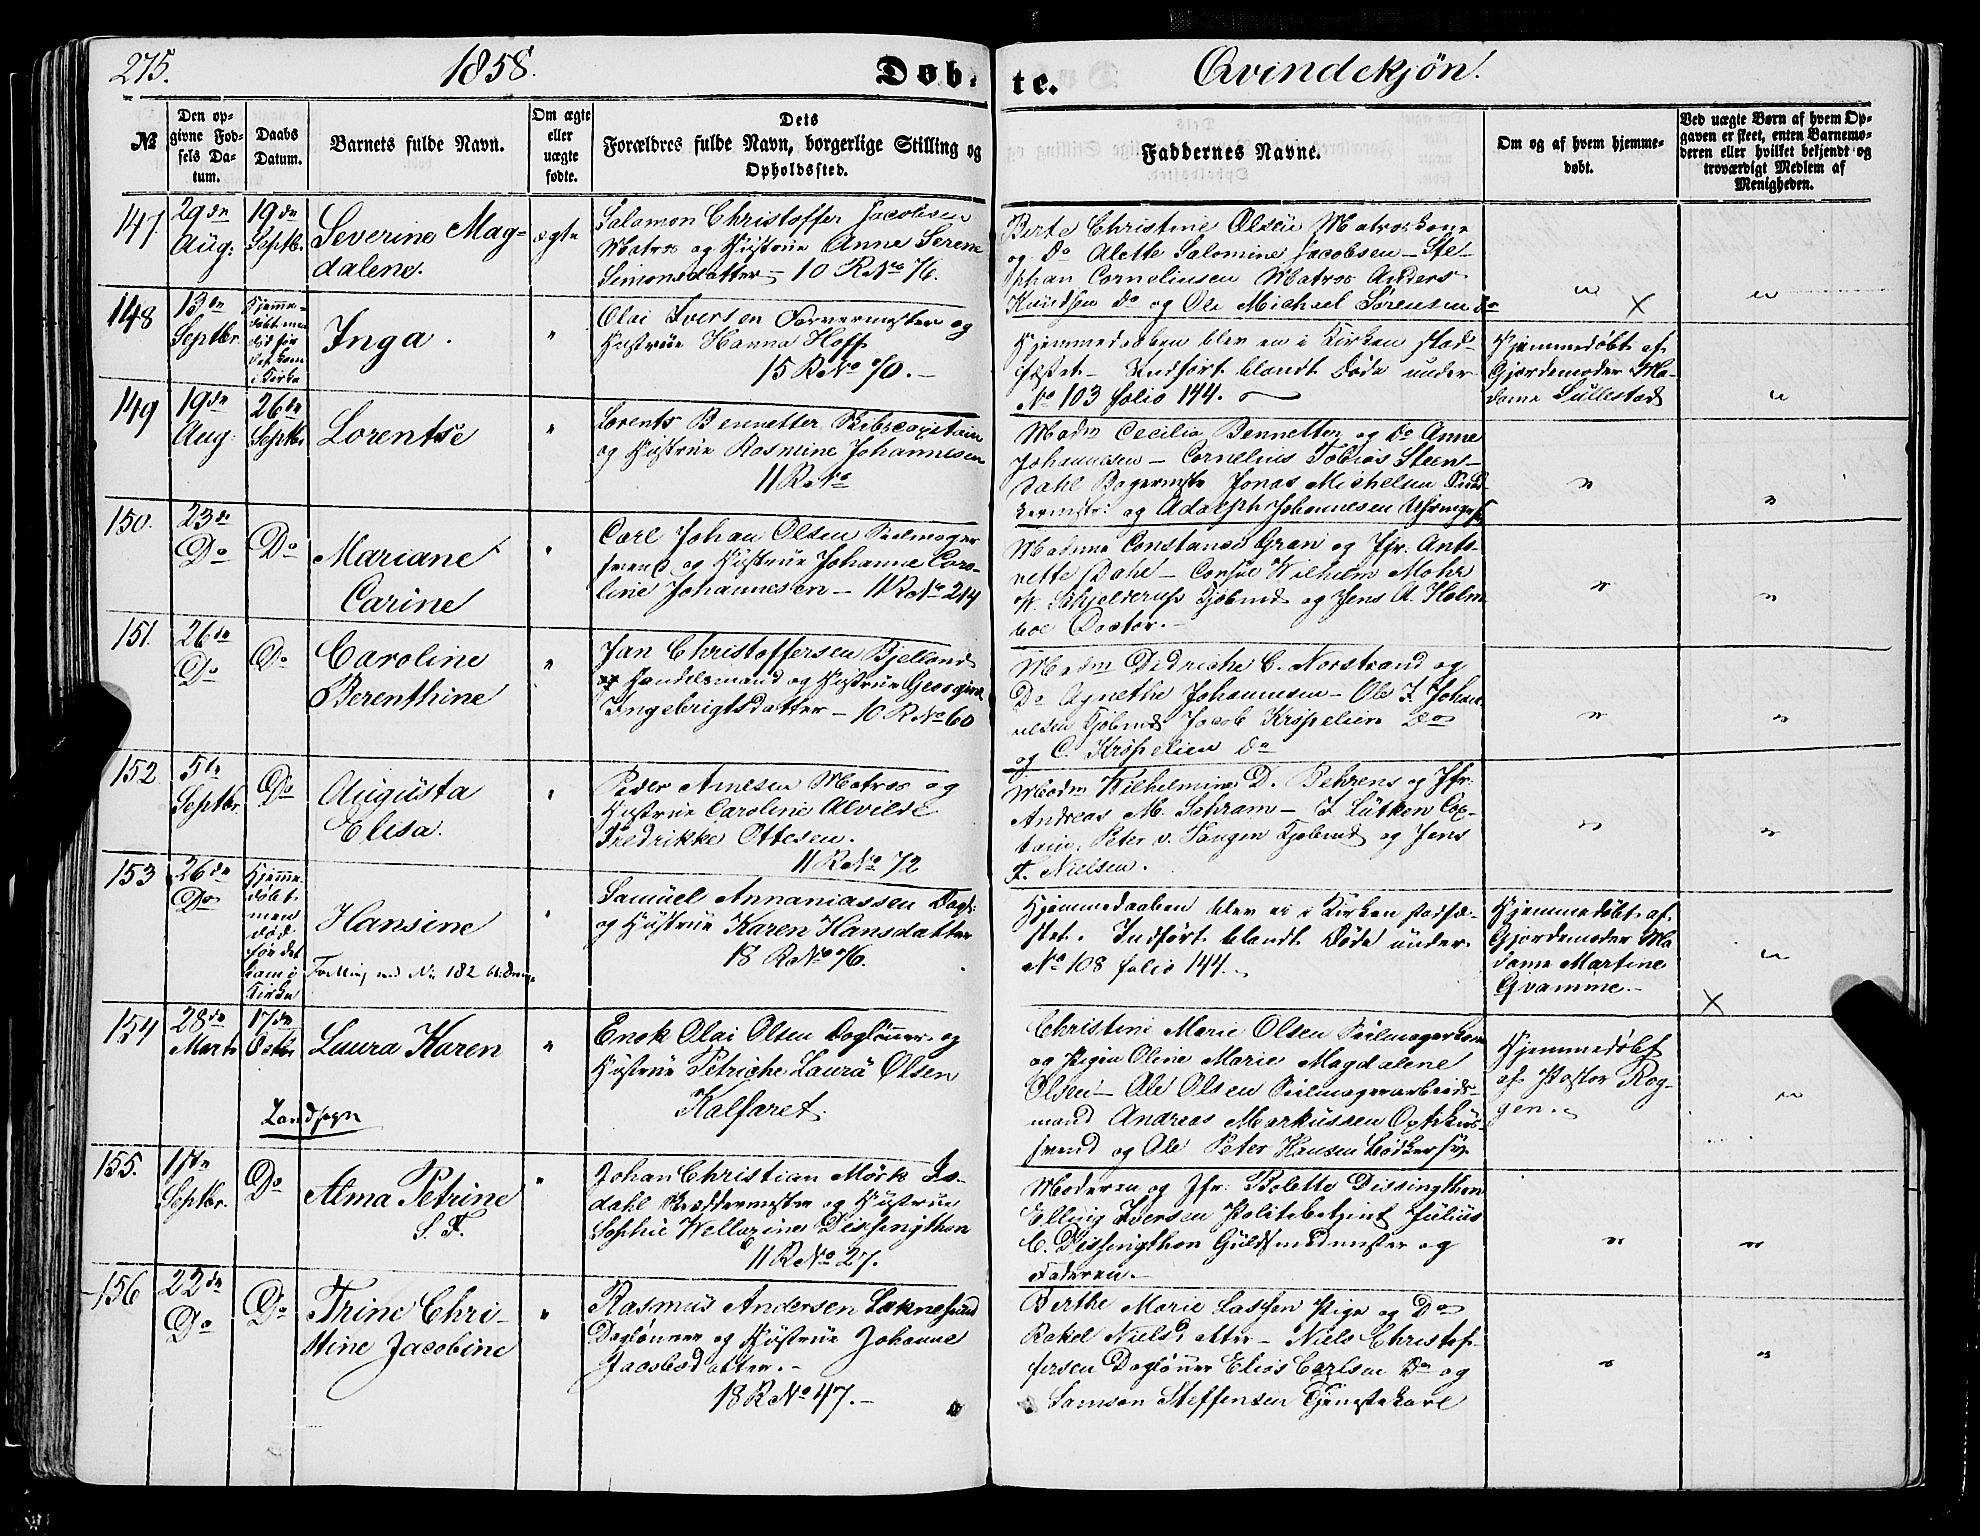 275.
1858.
Døbte.
Qvindekjøn.
№
Den opgivne Fodsels Datum.
Daabs Datum.
Barnets fulde Navn.
Om ægte eller uægte fødte.
Dets Forældres fulde Navn, borgerlige Stilling og Opholdssted.
Faddernes Navne.
Om og af hvem hjemmedøbt.
Ved uægte Børn af hvem Opgaven er skeet, enten Barnemoderen eller hvilket bekjendt og troværdigt Medlem af Menigheden.
147.
29de Aug:
19de Septbr.
Severine Magdalene.
ægte
Salomon Christoffer Jacobsen
Matros og Hustrue Anne Serene
Simonsdatter – 10 R No 76.
Berte Christine Olsen Matroskone
og Do Alette Salomine Jacobsen – Ste-
phan Corneliussen Matros Anders
Knudsen do og Ole Michael Sørensen do
"
X
"
148
13de Septbr.
Hjemmedøbt men død før det kom i Kirke
Inga.
"
Olai Iversen Farvermester og
Hustrue Hanna Hoff
15 R No 70. –
Hjemmedaaben blev ei i Kirken stad-
fæstet – Indført blandt Døde under
No 103 folio 144.
Hjemmedøbt af
Gjordemoder Ma-
dame Lullestad
"
149
19de Aug.
26de Septbr
Lorentse
"
Lorents Bennetter Skibscapitain
og Hustrue Rasmine Johannesen
11 R No
Madm Cecilia Bennetter og Do Anne
Johannesen – Cornelius Tobias Steen-
dahl Bagermstr Jonas Michelsen
og Adolph Johannesen
"
"
150.
23de Do
Do
Mariane Carine
"
Carl Johan Olsen Seilmager
svend og Hustrue Johanne Caro-
line Johannesen – 11 R No 214
Madame Constance Gran og Jfr. Anto-
nette Dahl – Consul Wilhelm Mohr
W. Schjelderup Kjøbmd og Jens A. Holm
boe Doctor. –
"
"
151.
26de Do
Do
Caroline Berenthine
"
Jan Christoffersen Bjelland
Handelsmand og Hustrue Georgine
Ingebrigtsdatter – 10 R No 60
Madm Didriche C. Norstrand og
Do Agnethe Johannesen – Ole I. Johan-
nesen Kjøbmd Jacob Krøpelien Do
og C. Krøpelien do
"
"
152
5te Septbr.
Do
Augusta Elisa.
"
Peder Arnesen Matros og
Hustrue Caroline Alvilde
Fredrikke Ottesen.
11 R No 72
Madm Wilhelmine D. Behrens og Jfr.
Andreas M. Schram – I. Lütken Cap-
tain, Peter v. Tangen Kjøbmd og Jens
F. Nielsen.
"
"
153
26de Do
Hjemmedøbt men død før det kom i Kirke
Hansine
Tvilling med No 182
"
Samuel Annaniassen Dagl:
og Hustrue Karen Hansdatter
18 R No 76.
Hjemmedaaben blev ei i Kirken stadfæ-
stet. Indført blandt Døde under
No 108 folio 144.
Hjemmedøbt af
Gjordemoder Ma
dame Martine
Qvamme. –
X
"
154
28de Marts
17de Octbr
Laura Karen
Landsogn
"
Enok Olai Olsen Dagløner og
Hustrue Petriche Laura Olsen
Kalfaret.
Christine Marie Olsen Seilmagerkone
og Pigen Oline Marie Magdalene
Olsen – Ole Olsen Seilmagerarbeids-
mand Andreas Markussen
svend og Ole Peter Hansen Bødkersv.
Hjemmedøbt
af Pastor Rog-
gen.
"
155.
11te Septbr.
Do
Alma Petrine S. F.
"
Johan Christian Mørk Is-
dahl Skræddermester og Hustrue
Sophie Wellazine Dissingthon
11 R No 27.
Moderen og Jfr: Bolette Dissingthon
Elling Iversen Politibetjent Julius
C. Dissingthon Guldsmedmester og
Faderen. –
"
"
156
22de Do
Do
Trine Christine Jacobine
"
Rasmus Andersen Laknesund
Dagløner og Hustrue Johanne
Jacobsdatter. –
18 R No 47. –
Berthe Marie Lassen Pige og Do
Rakel Nielsdatter – Niels Christof-
fersen Dagløner Elias Carlsen Do og
Samson Steffensen Tjenestekarl
"
"